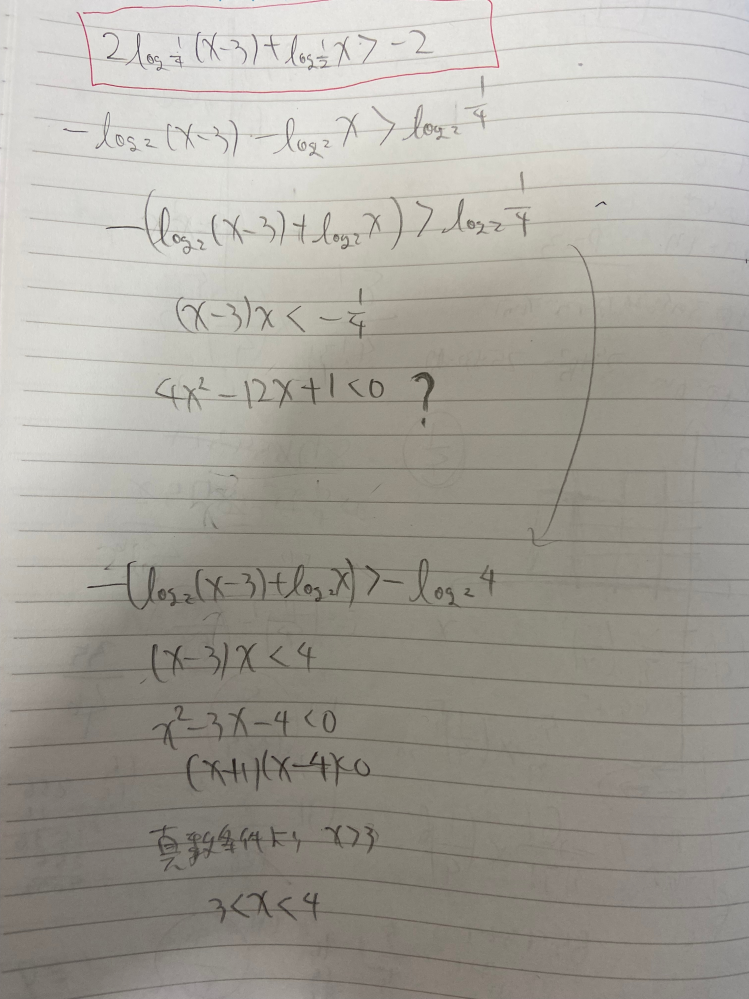 2log_{1/4}(x-3)+log_{1/2}x>-2
-log₂(x-3)-log₂x>log₂1/4
-(log₂(x-3)+log₂x)>log₂1/4
(x-3)x<-1/4
4x²-12x+1<0 ?
-(log₂(x-3)+log₂x)>-log₂4
(x-3)x<4
x²-3x-4<0
(x+1)(x-4)<0
真数条件より x>3
3<x<4